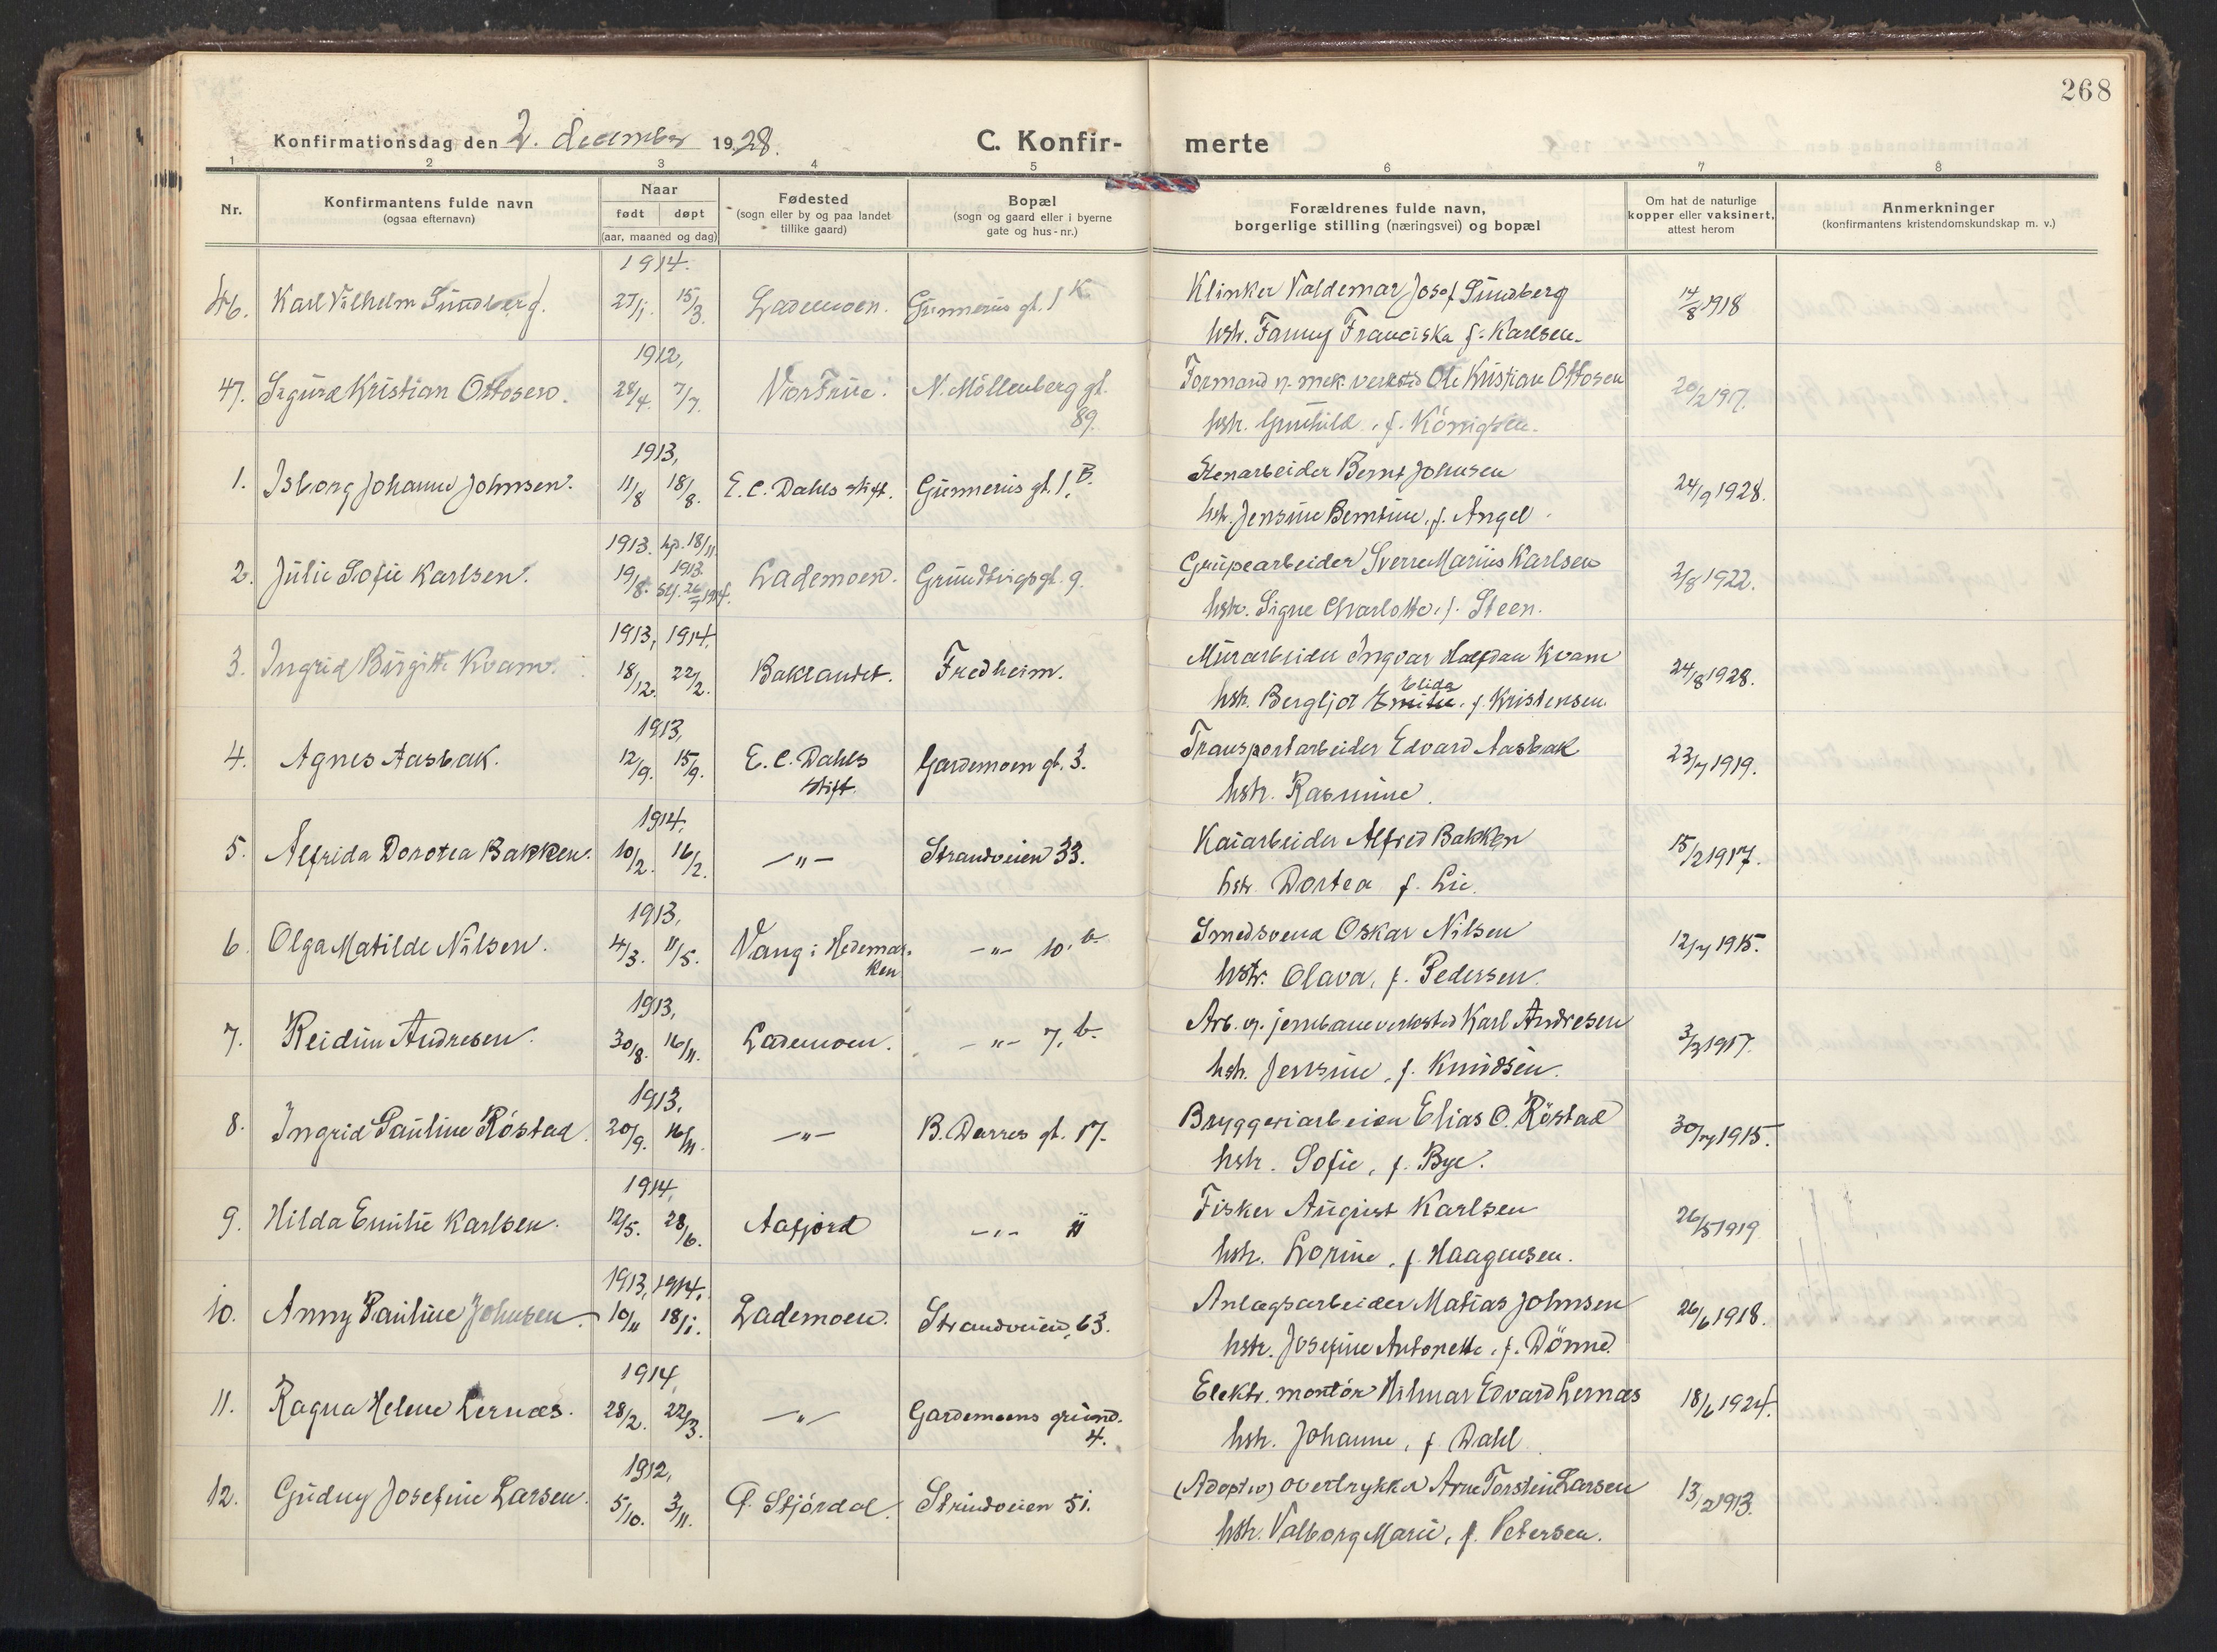 268
Konfirmationsdag den 2. december 1928.
C. Konfir- merte
1 2 3 4 5 6 7 8
Nr.
Konfirmantens fulde navn
(ogsaa efternavn)
Naar
født døpt
(aar, maaned og dag)
Fødested
(sogn eller by og paa landet
tillike gaard)
Bopæl
(sogn og gaard eller i byerne
gate og hus-nr.)
Forældrenes fulde navn,
borgerlige stilling (næringsvei) og bopæl
Om hat de naturlige
kopper eller vaksinert,
attest herom
Anmerkninger
(konfirmantens kristendomskundskap m. v.)
1914.
46. Karl Vilhelm Sundberg. 27/1. 15/3. Lademoen. Gunnerus gt. 1 K. Klinker Valdemar Josef Sundberg 14/8 1918
hstr. Fanny Franciska f. Karlsen.
1912,
47. Sigurd Kristian Ottosen. 28/4. 7/7. Vor Frue. N. Möllenberg gt. 89. Formand v. mek. verksted Ole Kristian Ottosen 20/2 1917.
hstr. Gunhild, f.
1913,
1. Isborg Johanne Johnsen. 11/8 18/8. E. C. Dahls stift. Gunnerus gt. 1. B. Stenarbeider Bernt Johnsen 24/9 1928.
hstr. Jensine Berntine, f. Angel
1913. hjd. 18/11 1913. stf. 26/7 1914.
2. Julie Sofie Karlsen. 19/8. Lademoen. Grundtvigs gt. 9. Grubearbeider Sverre Marius Karlsen 2/8 1922.
hstr. Signe Charlotte, f. Steen.
1913, 1914.
3. Ingrid Birgitte Kvam. 18/12. 22/2. Baklandet. Fredheim. Murarbeider Ingvar Halfdan Kvam 24/8 1928.
hstr. Bergljot Emilie Elida, f. Kristensen.
1913,
4. Agnes Aasbak. 12/9. 15/9. E. C. Dahls stift. Gardemoen gt. 3. Transportarbeider Edvard Aasbak 23/7 1919.
hstr. Rasmine.
1914,
5. Alfrida Dorotea Bakken. 10/2. 16/2. -"- Strandveien 33. Kaiarbeider Alfred Bakken 15/2 1917.
hstr. Dortea f. Lie.
1913,
6. Olga Matilde Nilsen. 4/3. 11/5. Vang i Hedemarken -"- 10. b. Smedsvend Oskar Nilsen 12/7 1915.
hstr. Olava, f. Pedersen.
1913,
7. Reidun Andresen. 30/8. 16/11. Lademoen. -"- 7. b. Arb. v. jernbaneverksted Karl Andresen 3/3 1917.
hstr. Jensine, f. Knudsen.
1913.
8. Ingrid Pauline Röstad. 20/9. 16/11. -"- B. Darres gt. 17. Bryggeriarbeider Elias O. Röstad 30/7 1915.
hstr. Sofie, f. Bye.
1914,
9. Hilda Emilie Karlsen. 12/5. 28/6. Aafjord -"- " Fisker August Karlsen 26/5 1919
hstr. Lorine, f. Haagensen.
1913, 1914.
10. Anny Pauline Johnsen. 10/11 18/1. Lademoen. Strandveien 63. Anlægsarbeider Matias Johnsen 26/6 1918.
hstr. Josefine Antonette, f. Dönne.
1914,
11. Ragna Helene Lernæs. 28/2. 22/3. -"- Gardemoens grund. 4. Elektr. montör Hilmar Edvard Lernæs 18/6 1924.
hstr. Johanne, f. Dahl
1912,
12. Gudny Josefine Larsen. 5/10. 3/11. Stjördal. Strindveien 51. (Adoptiv) overtrykker Arne Torstein Larsen 13/2 1913.
hstr. Valborg Marie, f. Petersen.